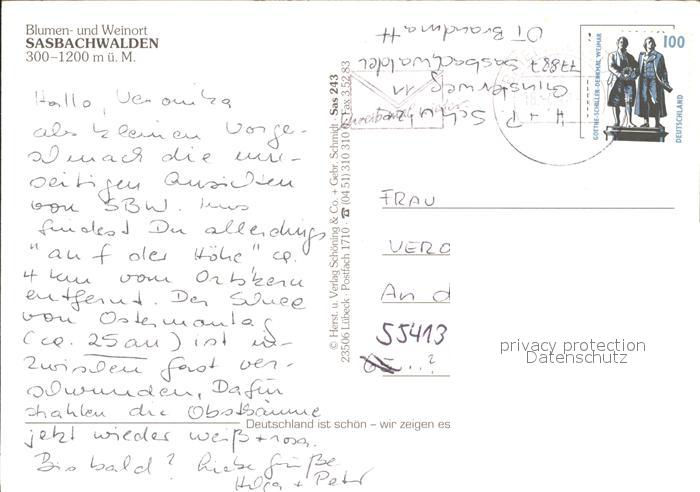 Blumen- und Weinort
SASBACHWALDEN
300–1200 m ü. M.
Hallo, Veronika
als kleinen Vorge-
schmack die um-
seitigen Ansichten
von SBW. Uns
findest Du allerdings
"auf der Höhe" ca.
4 km vom Ortskern
entfernt. Der Schnee
von Ostermontag
(ca. 25 cm) ist in-
zwischen fast ver-
schwunden. Dafür
strahlen die Obstbäume
jetzt wieder weiß + rosa.
Bis bald? Liebe Grüße
Helga + Peter
© Herst. u. Verlag Schöning & Co. + Gebr. Schmidt · Sas 243
23506 Lübeck · Postfach 1710 · ☎ (04 51) 310 310 · Fax 3 52 83
H. + P.
Ginsterweg 11
77887 Sasbachwalden
OT Brandmatt
GOETHE-SCHILLER-DENKMAL WEIMAR
100
DEUTSCHLAND
FRAU
VERO
An d
55413
...?
privacy protection
Datenschutz
Deutschland ist schön – wir zeigen es